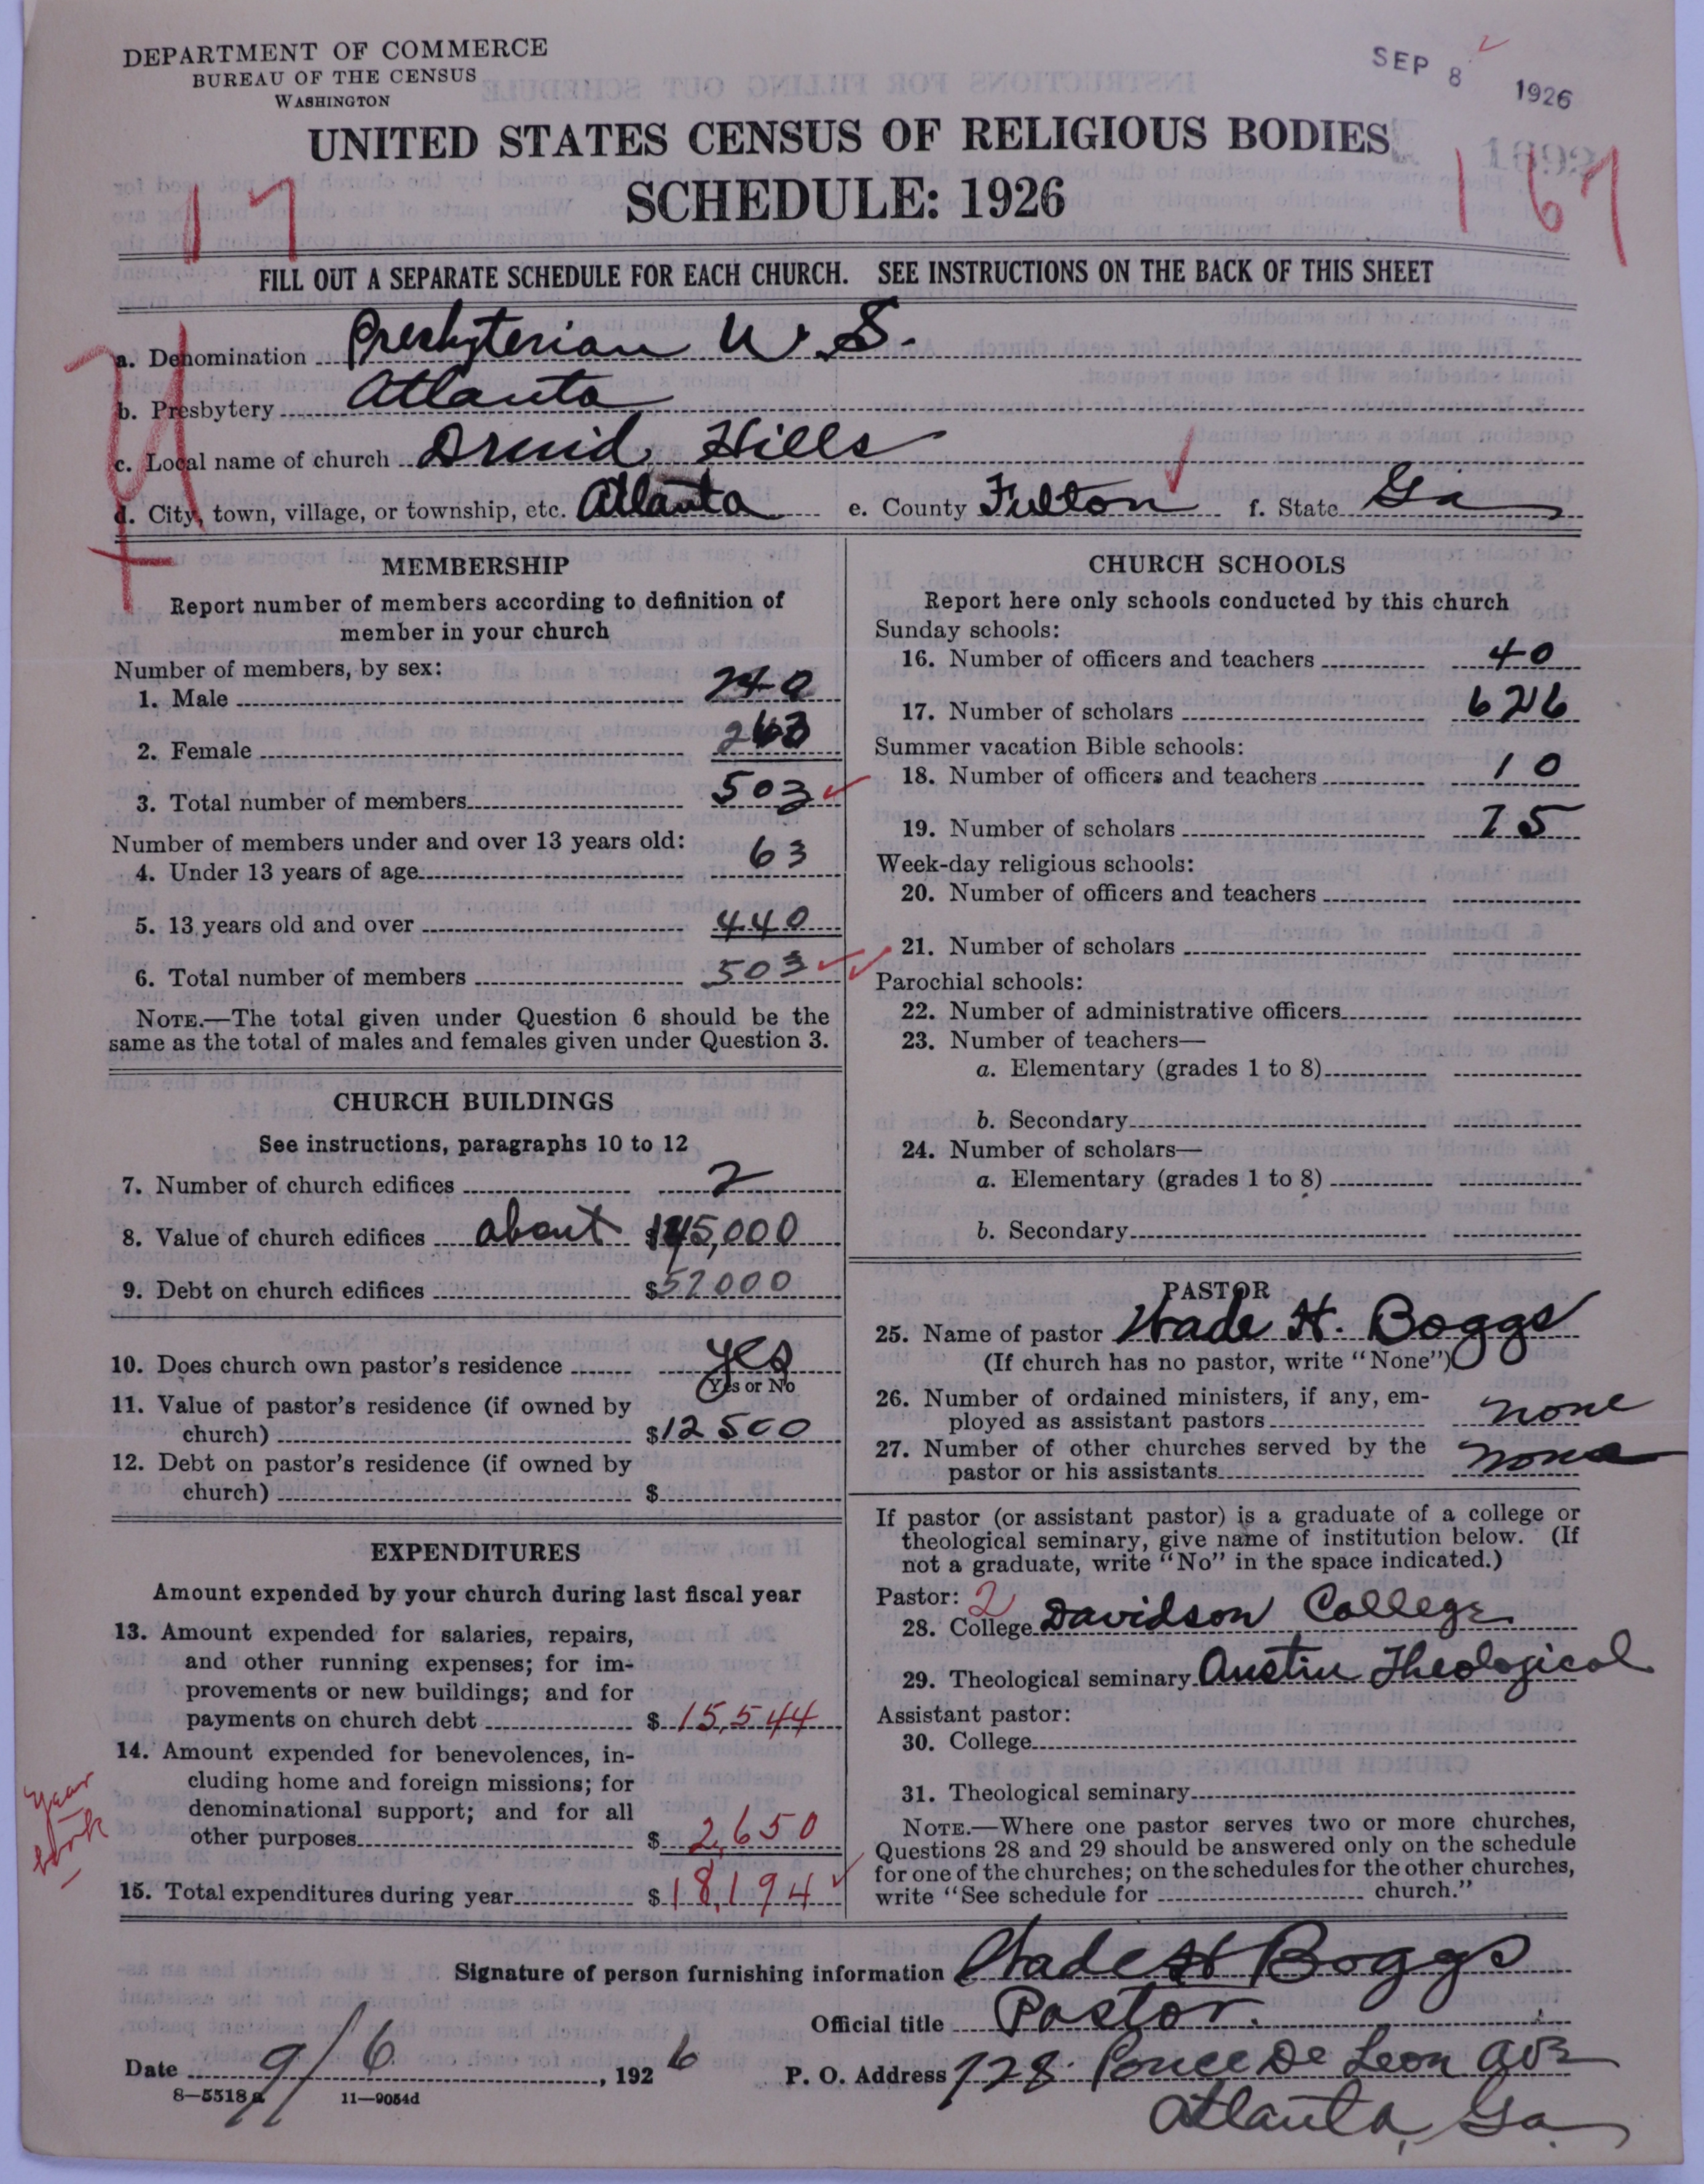 DEPARTMENT OF COMMERCE
BUREAU OF THE CENSUS
WASHINGTON
SEP 8 1926
UNITED STATES CENSUS OF RELIGIOUS BODIES
SCHEDULE: 1926
17
167
FILL OUT A SEPARATE SCHEDULE FOR EACH CHURCH. SEE INSTRUCTIONS ON THE BACK OF THIS SHEET
a. Denomination Presbyterian U.S.
b. Presbytery Atlanta
c. Local name of church Druid Hills
d. City, town, village, or township, etc. Atlanta e. County Fulton f. State Ga
MEMBERSHIP
Report number of members according to definition of
member in your church
Number of members, by sex:
1. Male 240
2. Female 263
3. Total number of members 503
Number of members under and over 13 years old:
4. Under 13 years of age 63
5. 13 years old and over 440
6. Total number of members 503
NOTE.—The total given under Question 6 should be the
same as the total of males and females given under Question 3.
CHURCH BUILDINGS
See instructions, paragraphs 10 to 12
7. Number of church edifices 2
8. Value of church edifices about $ 5,000
9. Debt on church edifices $ 000
10. Does church own pastor's residence yes
Yes or No
11. Value of pastor's residence (if owned by
church) $12500
12. Debt on pastor's residence (if owned by
church) $
EXPENDITURES
Amount expended by your church during last fiscal year
13. Amount expended for salaries, repairs,
and other running expenses; for im-
provements or new buildings; and for
payments on church debt $ 15,544
14. Amount expended for benevolences, in-
cluding home and foreign missions; for
denominational support; and for all
other purposes $ 2,650
Year
book
15. Total expenditures during year $ 18,194
CHURCH SCHOOLS
Report here only schools conducted by this church
Sunday schools:
16. Number of officers and teachers 40
17. Number of scholars 626
Summer vacation Bible schools:
18. Number of officers and teachers 10
19. Number of scholars 75
Week-day religious schools:
20. Number of officers and teachers
21. Number of scholars
Parochial schools:
22. Number of administrative officers
23. Number of teachers—
a. Elementary (grades 1 to 8)
b. Secondary
24. Number of scholars—
a. Elementary (grades 1 to 8)
b. Secondary
PASTOR
25. Name of pastor Wade H. Boggs
(If church has no pastor, write "None")
26. Number of ordained ministers, if any, em-
ployed as assistant pastors none
27. Number of other churches served by the
pastor or his assistants none
If pastor (or assistant pastor) is a graduate of a college or
theological seminary, give name of institution below. (If
not a graduate, write "No" in the space indicated.)
Pastor: 2
28. College Davidson College
29. Theological seminary Austin Theological
Assistant pastor:
30. College
31. Theological seminary
NOTE.—Where one pastor serves two or more churches,
Questions 28 and 29 should be answered only on the schedule
for one of the churches; on the schedules for the other churches,
write "See schedule for church."
Signature of person furnishing information Wade H Boggs
Official title Pastor.
Date 9/6, 1926 P. O. Address 728 Ponce De Leon Ave
Atlanta, Ga.
8-5518a 11-9054d